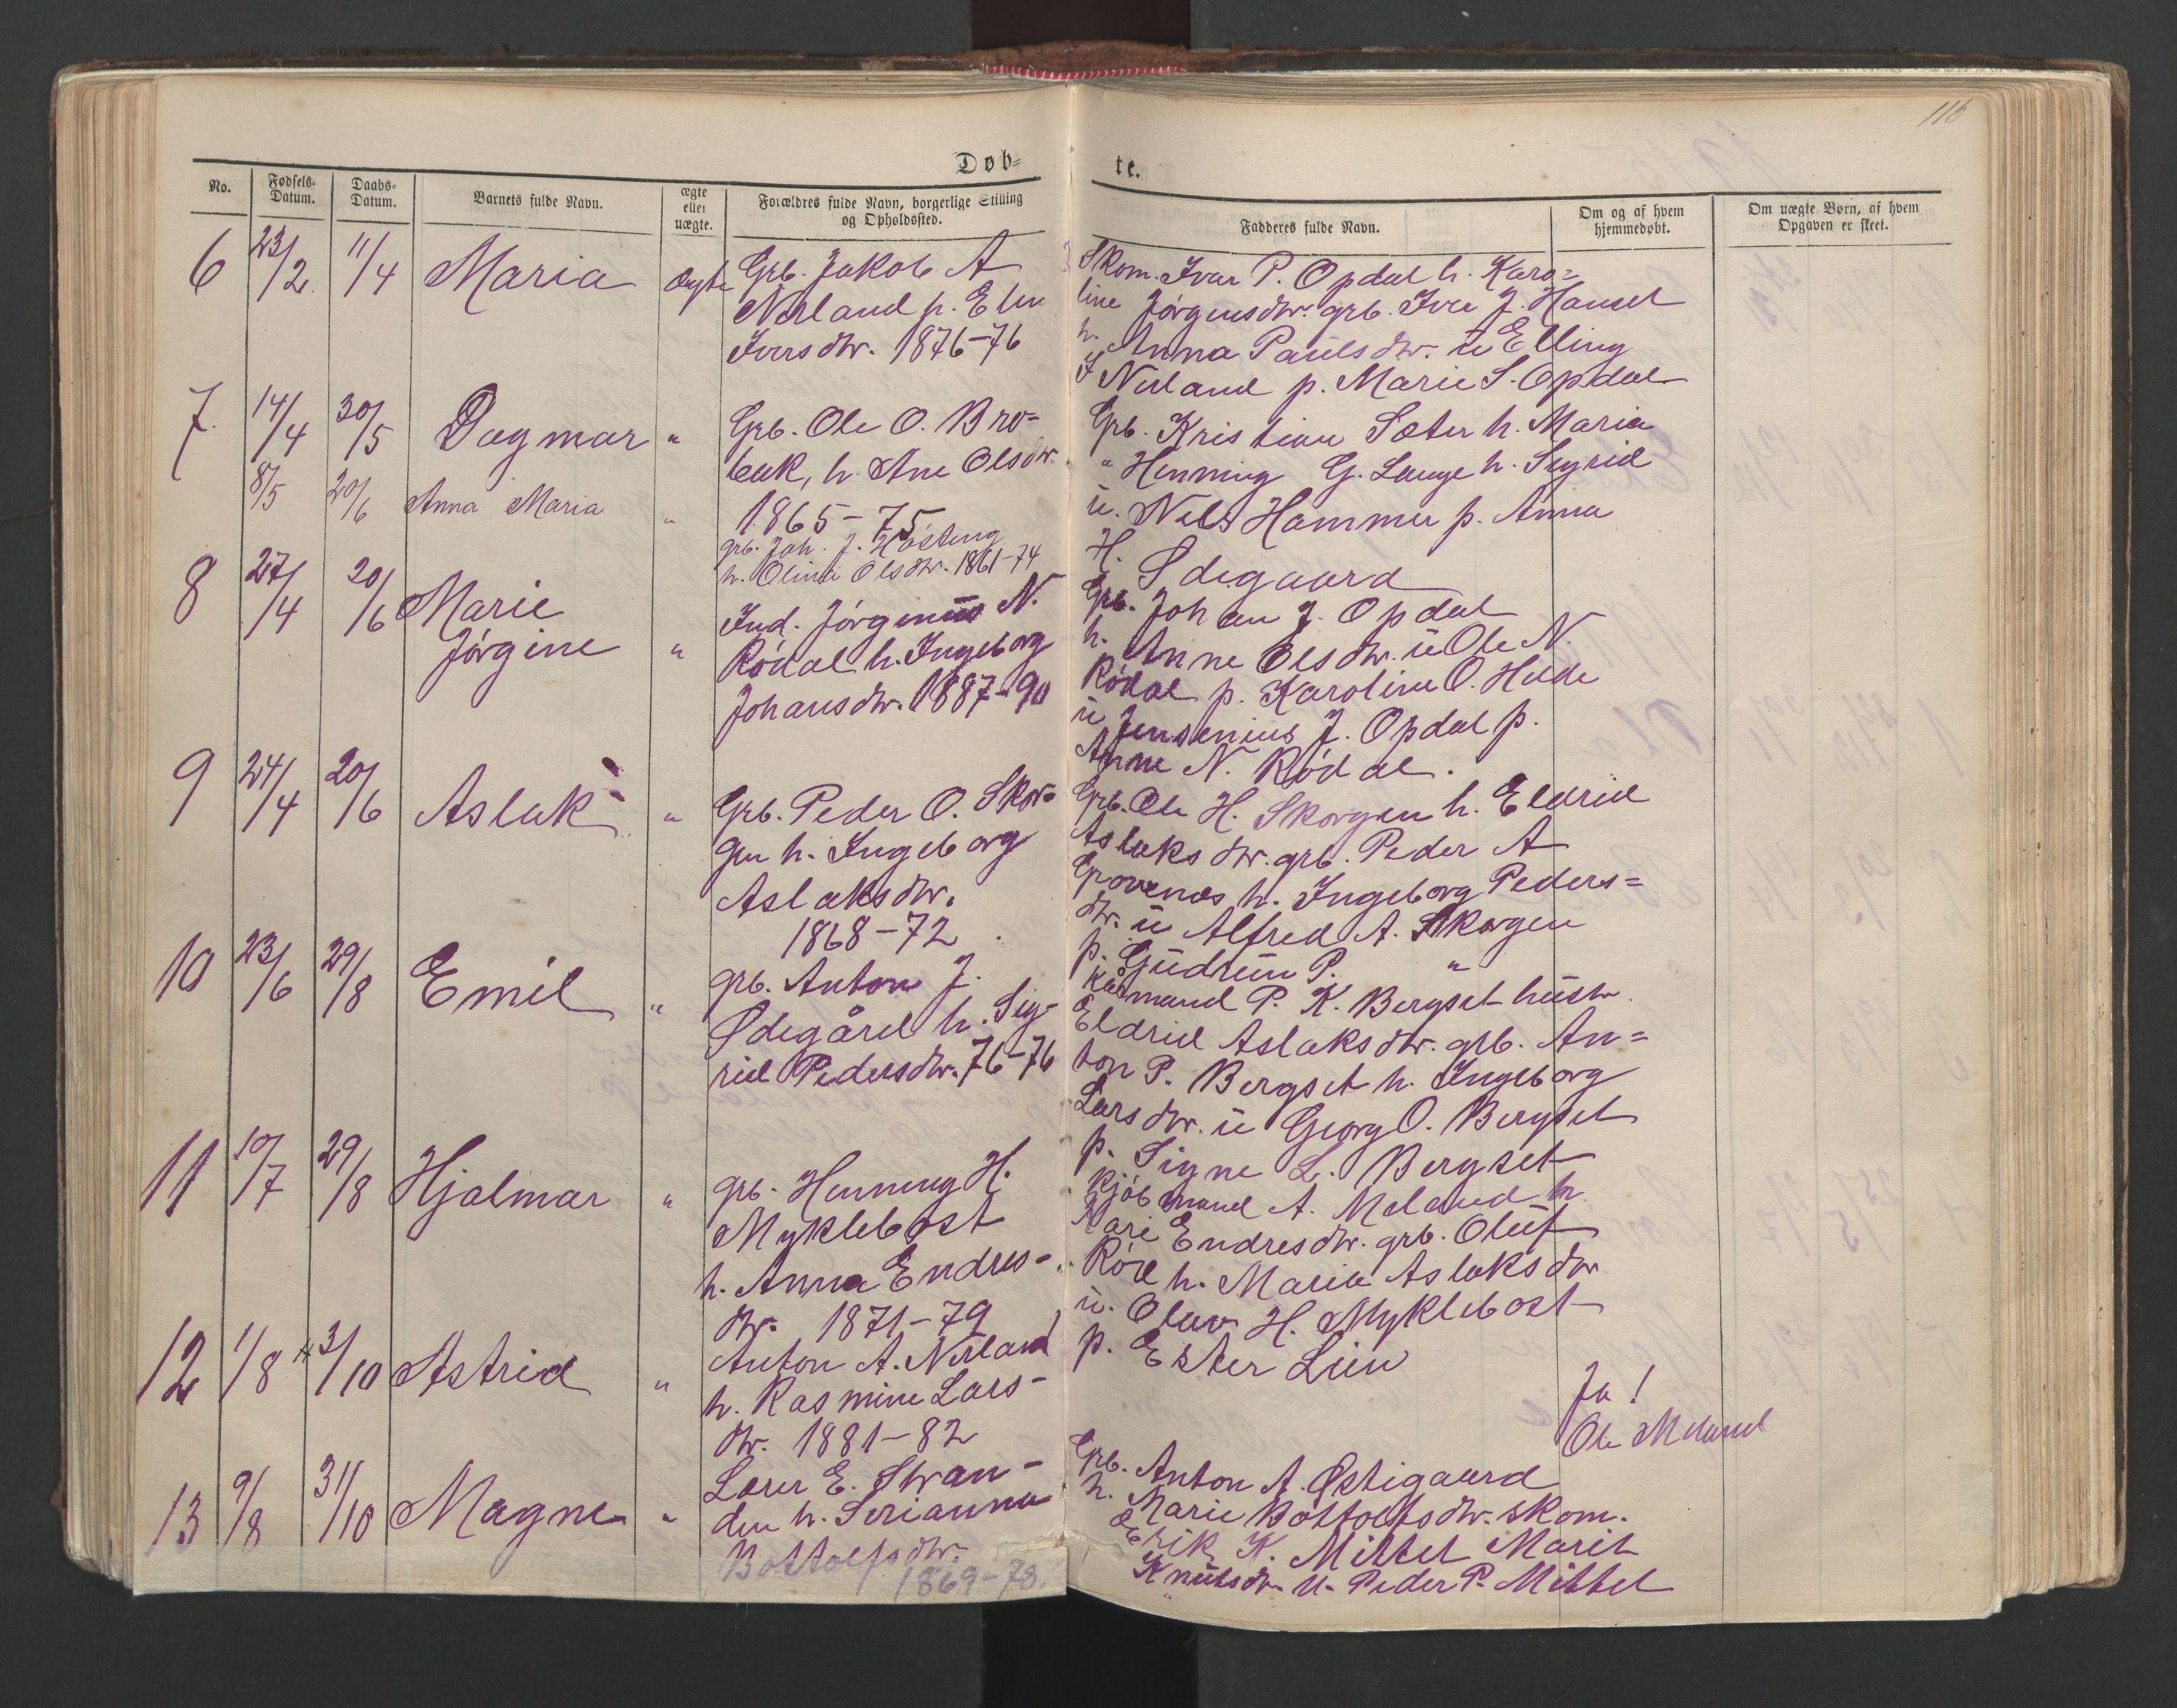 116
Døb=
te.
No.
Fødsels-
Datum.
Daabs-
Datum.
Barnets fulde Navn.
ægte
eller
uægte.
Forældres fulde Navn, borgerlige Stilling
og Opholdssted.
Fadderes fulde Navn.
Om og af hvem
hjemmedøbt.
Om uægte Børn, af hvem
Opgaven er skeet.
6 23/2 11/4 Maria ægte
Grb. Jakob A
Nerland h. Elen
Iversdtr. 1876-76
Skom. Ivar P. Opdal h. Karo=
line Jørgensdtr. grb. Iver J. Hauset
h. Anna Paulsdtr. u Elling
J Nerland p. Marie S. Opdal
7. 14/4 30/5 Dagmar "
Grb. Ole O. Bro-
bak, h. Ane Olsdtr.
1865-75
Grb. Kristian Sæter h. Maria
" Henning G. Lange h. Sigrid
u. Nels Hammer p. Anna
H. Ødegaard
8/5 20/6 Anna Maria "
grb. Joh. J. Høsteng
h. Olina Olsdtr. 1861-74
8 27/4 20/6 Marie
Jørgine "
Ind. Jørginus N.
Rødal h. Ingeborg
Johansdtr. 1887-90
Grb. Johan J. Opdal
h. Anne Olsdtr. u Ole N.
Rødal p. Karoline O. Helde
u Jensenius J. Opdal p.
Anne N. Rødal.
9 24/4 20/6 Aslak "
Grb. Peder O. Skor=
gen h. Ingeborg
Aslaksdtr.
1868-72
Grb. Ole H. Skorgen h. Eldrid
Aslaksdtr. grb. Peder A
Grovenes h. Ingeborg Peders=
dtr. u Alfred A. Skorgen
p. Gudrun P. "
10 23/6 29/8 Emil "
grb. Anton J.
Ødegård h. Sig-
rid Pedersdtr. 76-76
Kårmand P. K. Bergset hustr.
Eldrid Aslaksdtr. grb. An=
ton P. Bergset h. Ingeborg
Larsdtr. u Georg O. Bergset
p. Signe L. Bergset
11 10/7 29/8 Hjalmar "
grb. Henning H.
Myklebost
h. Anna Endres-
dtr. 1871-79
Kjøbmand A. Meland h.
Kari Endresdtr. grb. Oluf
Rød h. Maria Aslaksdtr
u. Olav H. Myklebost
p. Ester Lien
12 1/8 31/10 Astrid "
Anton A. Nerland
h. Rasmine Lars-
dtr. 1881-82
Ja!
Ole Meland
13 9/8 31/10 Magne "
Lærer E. Stran-
den h. Serianna
Bottolfsdtr.
1869-78.
Grb. Anton A. Østigaard
h. Marie Bottolfsdtr. skom.
Erik K. Mittet Marit
Knutsdtr. u. Peder P. Mittet